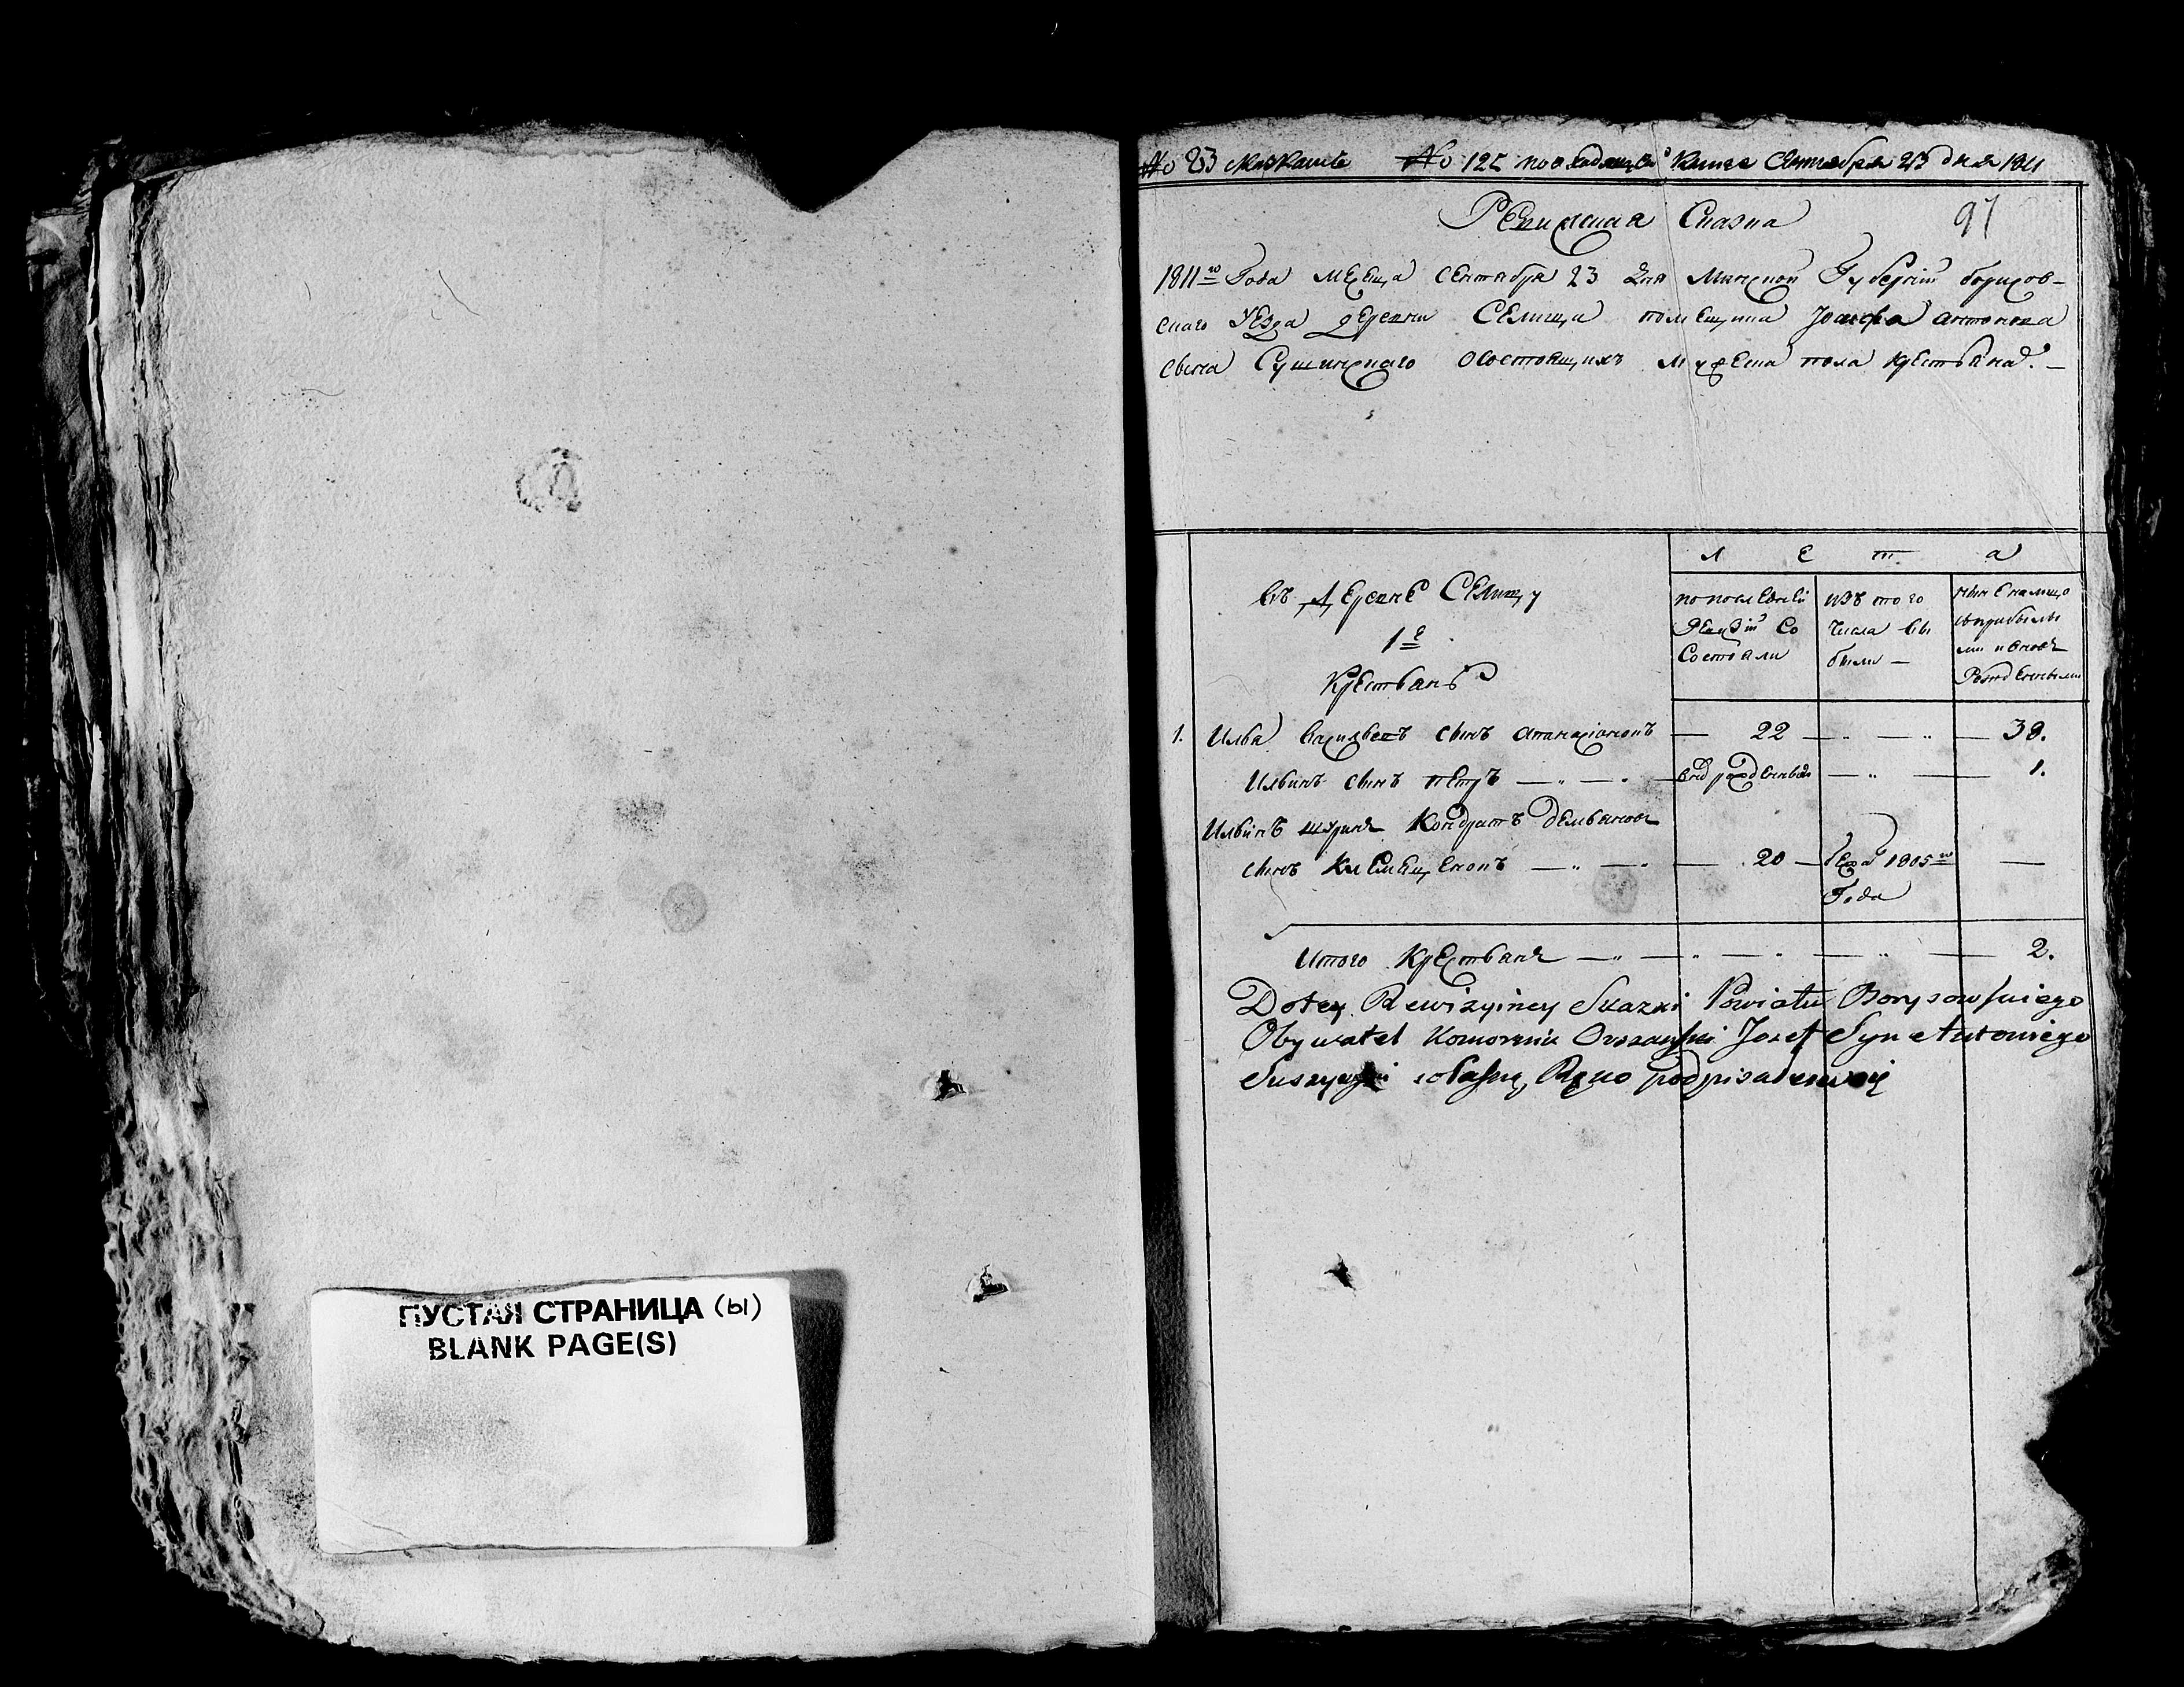 No 23 No 125 по входящей Книге Сентября 23 дня 1811
Ревизская Сказка 97
1811го Года месеца Сентября 23 дня Минской Губернии Борисов-
скаго Уезда деревни Селища помещика Іозефа антонова
сына Сушинскаго осостоящихъ мужеска пола крестьянах. —
Л е т а
въ Деревне Селищу
1е
Крестьянъ
попоследней Ревизіи Со Состояли
изъ того числа вы были —
ныне налицо
сприбылы
ми и вновь
Рожденными
1. Илья Васильевъ сынъ Атанасіоновъ — 22 — — 38.
Ильинъ сынъ петръ — внов рожденный — 1.
Ильинъ шуринъ Кондратъ Демьяновъ
сынъ Клемещеновъ — 20 — 1805го —
Года
Итого Крестьянъ — 2.
Do tey Rewizyiney Skazki Powiatu Borysowskiego
Obywatel Komornik Orszanski Jozef Syn Antoniego
Suszynski własną Ręko podpisałem się
ПУСТАЯ СТРАНИЦА (ы)
BLANK PAGE(S)